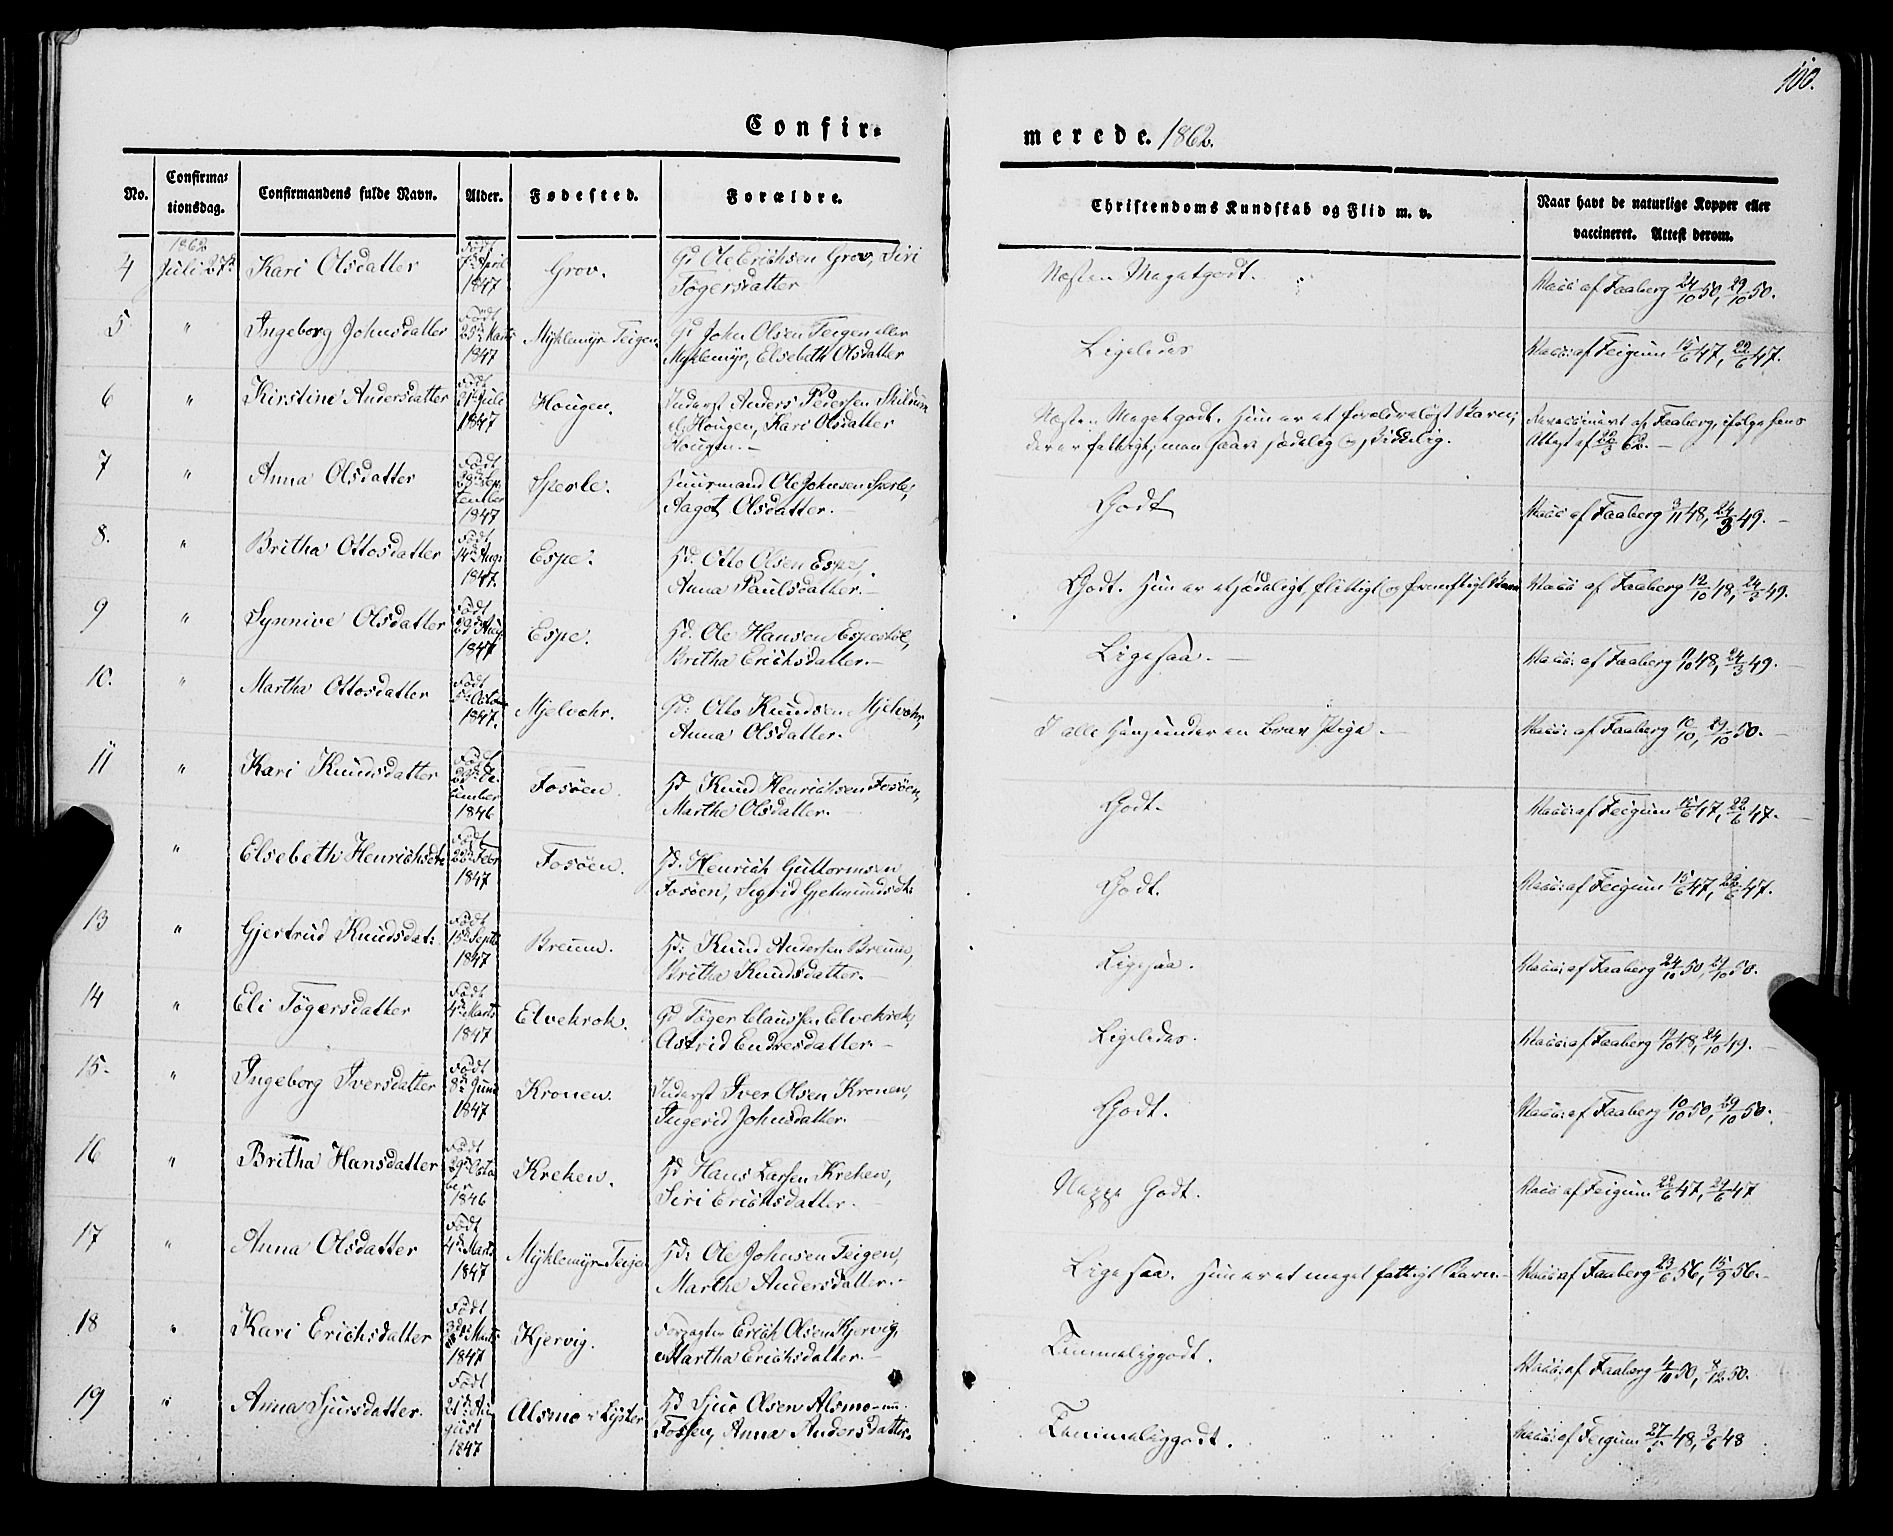 100.
Confir-
merede. 1862.
No.
Confirma-
tionsdag.
Confirmandens fulde Navn.
Alder.
Fødested.
Forældre.
Christendoms Kundskab og Flid m. v.
Naar havt de naturlige Kopper eller
vaccineret. Attest derom.
4
1862
Juli 27de
Kari Olsdatter
Født
7de April
1847
Grov.
Gd Ole Erichsen Grov, Siri
Tøgersdatter
Næsten Megetgodt.
Vacc: af Faaberg 24/10 50, 29/10 50.
5
"
Ingeborg Johnsdatter
Født
Marts
1847
Myklemyr Teigen.
Gd John Olsen Teigen eller
Myklemyr, Elsebeth Olsdatter
Ligeledes
Vacc: af Feigum 15/6 47, 22/6 47.
6
"
Kirstine Andersdatter
Født
Juli
1847
Hougen.
Inderst Anders Pedersen
Hougen, Kari Olsdatter
Hougen.-
Næsten Megetgodt. Hun er et forældreløst Barn;
der er fattigt; men sædelig og skikkelig.
Revaccineret af Faaberg, ifølge hans
Attest af 62.-
7
"
Anna Olsdatter
Født
Sep-
tember
1847
Sperle.
Huusmand Ole Johnsen Sperle,
Aagot Olsdatter.-
Godt
Vacc: af Faaberg 3/11 48, 24/3 49.-
8.
"
Britha Ottosdatter
Født
14de Aug.
1847.
Espe.
Hd. Otto Olsen Espe,
Anna Paulsdatter.-
Godt. Hun er et sædeligt, flittigt og fornuftigt Barn
Vacc: af Faaberg 12/10 48, 24/3 49.
9
"
Synnive Olsdatter
Født
Aug
1847
Espe.
Hd. Ole Hansen Espe
Britha Erichsdatter.-
Ligesaa.-
Vacc: af Faaberg 11/10 48, 24/3 49.-
10.
"
Martha Ottosdatter
Født
5te Octo
1847.
Mjelvehr.
Gd: Otto Knudsen Mjelvehr,
Anna Olsdatter.-
I alle Henseender en brav Pige.-
Vacc: af Faaberg 10/10, 29/10 50.-
11
"
Kari Knudsdatter
Født
De-
cember
1846
Fosøen.
Hd. Knud Henrichsen Fosøen,
Martha Olsdatter.-
Godt.
Vacc: af Feigum 15/6 47, 22/6 47.-
"
Elsebeth Henrichsdtr
Født
Febr
1847
Fosøen.
Hd. Henrich Guttormsen
Fosøen, Sigrid Gjelmundsdt:
Godt.
Vacc: af Feigum 15/6 47, 22/6 47.
13
"
Gjertrud Knudsdat:
Født
15de Septb
1847
Breum.
Hd: Knud Andersen Breum,
Britha Knudsdatter.-
Ligesaa.
Vacc: af Faaberg 24/10 50, 29/10 50.
14
"
Eli Tøgersdatter
Født
4de Marts
1847
Elvekrok.
Gd Tøger Claussen Elvekrok,
Astrid Endresdatter.-
Ligeledes.
Vacc: af Faaberg 12/10 48, 24/10 49.-
15.
"
Ingeborg Iversdatter
Født
8de Juni
1847
Kronen.
Inderst Iver Olsen Kronen,
Ingerid Johnsdatter.-
Godt.
Vacc: af Faaberg 10/10 50, 29/10 50.
16
"
Britha Hansdatter
Født
29de Octo
ber
1846
Kreken.
Hd Hans Larsen Kreken,
Siri Erichsdatter.
Neppe Godt.
Vacc: af Feigum 22/6 47, 29/6 47
17
"
Anna Olsdatter
Født
4de Marts
1847
Myklemyr Teigen
Hd: Ole Johnsen Teigen,
Marthe Andersdatter.-
Ligesaa. Hun er et meget fattigt Barn.-
Vacc: af Faaberg 23/6 56, 15/9 56.-
18
"
Kari Erichsdatter
Født
Marts
1847
Kjervig.
Forpagter Erich Olsen Kjervig,
Martha Erichsdatter.-
Temmeliggodt.
Vacc: af Faaberg 4/11 50, 4/12 50.
19
"
Anna Sjursdatter.
Født
21de Au-
gust
1847
Alsmo i Lyster
Hd Sjur Olsen Alsmo
Fossen, Anna Andersdatter.
Temmeliggodt.
Vacc: af Feigum 27/5 48, 3/6 48